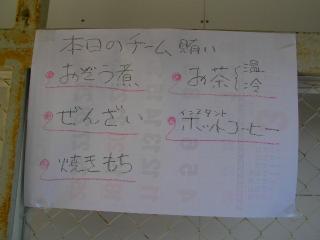 本日のチーム賄い
おぞう煮
ぜんざい
焼きもち
お茶 温 冷
インスタント
ホットコーヒー